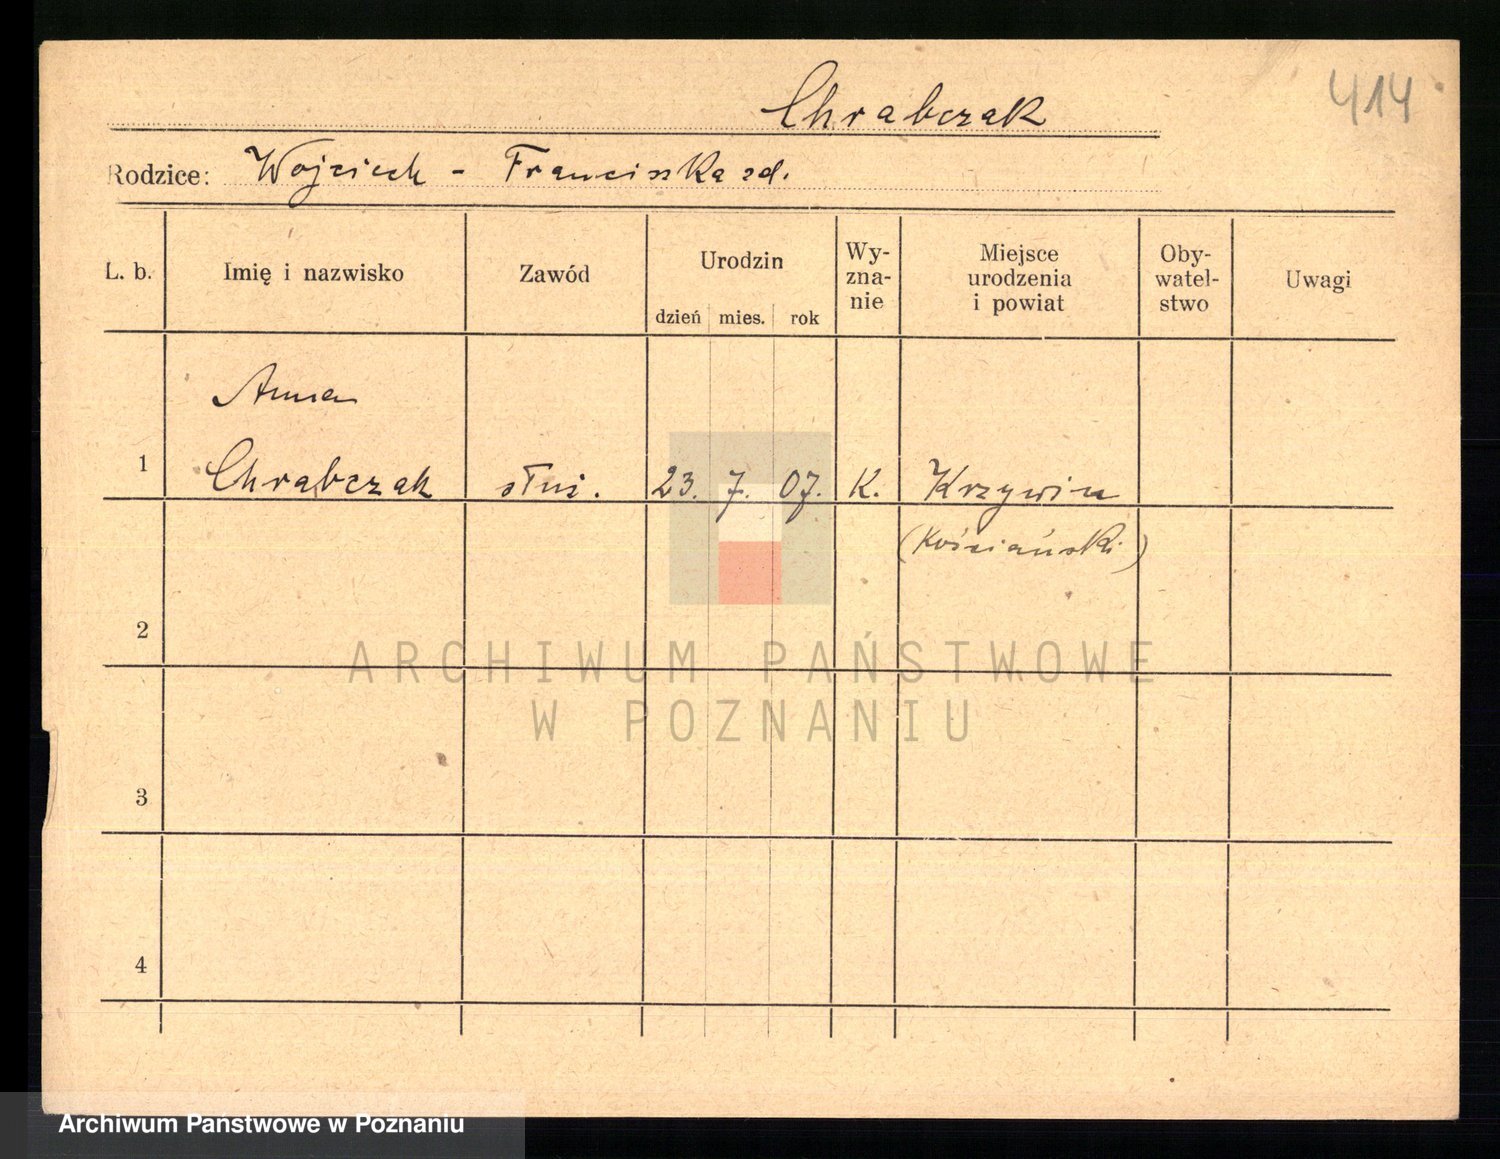 Chrabczak
414
Rodzice: Wojciech - Franciszka zd.
L. b.
Imię i nazwisko
Zawód
Urodzin
dzień mies. rok
Wy-
zna-
nie
Miejsce
urodzenia
i powiat
Oby-
watel-
stwo
Uwagi
Anna
1 Chrabczak służ. 23. 7. 07. K. Krzywin
(Kościański)
2
ARCHIWUM PAŃSTWOWE
W POZNANIU
3
4
Archiwum Państwowe w Poznaniu